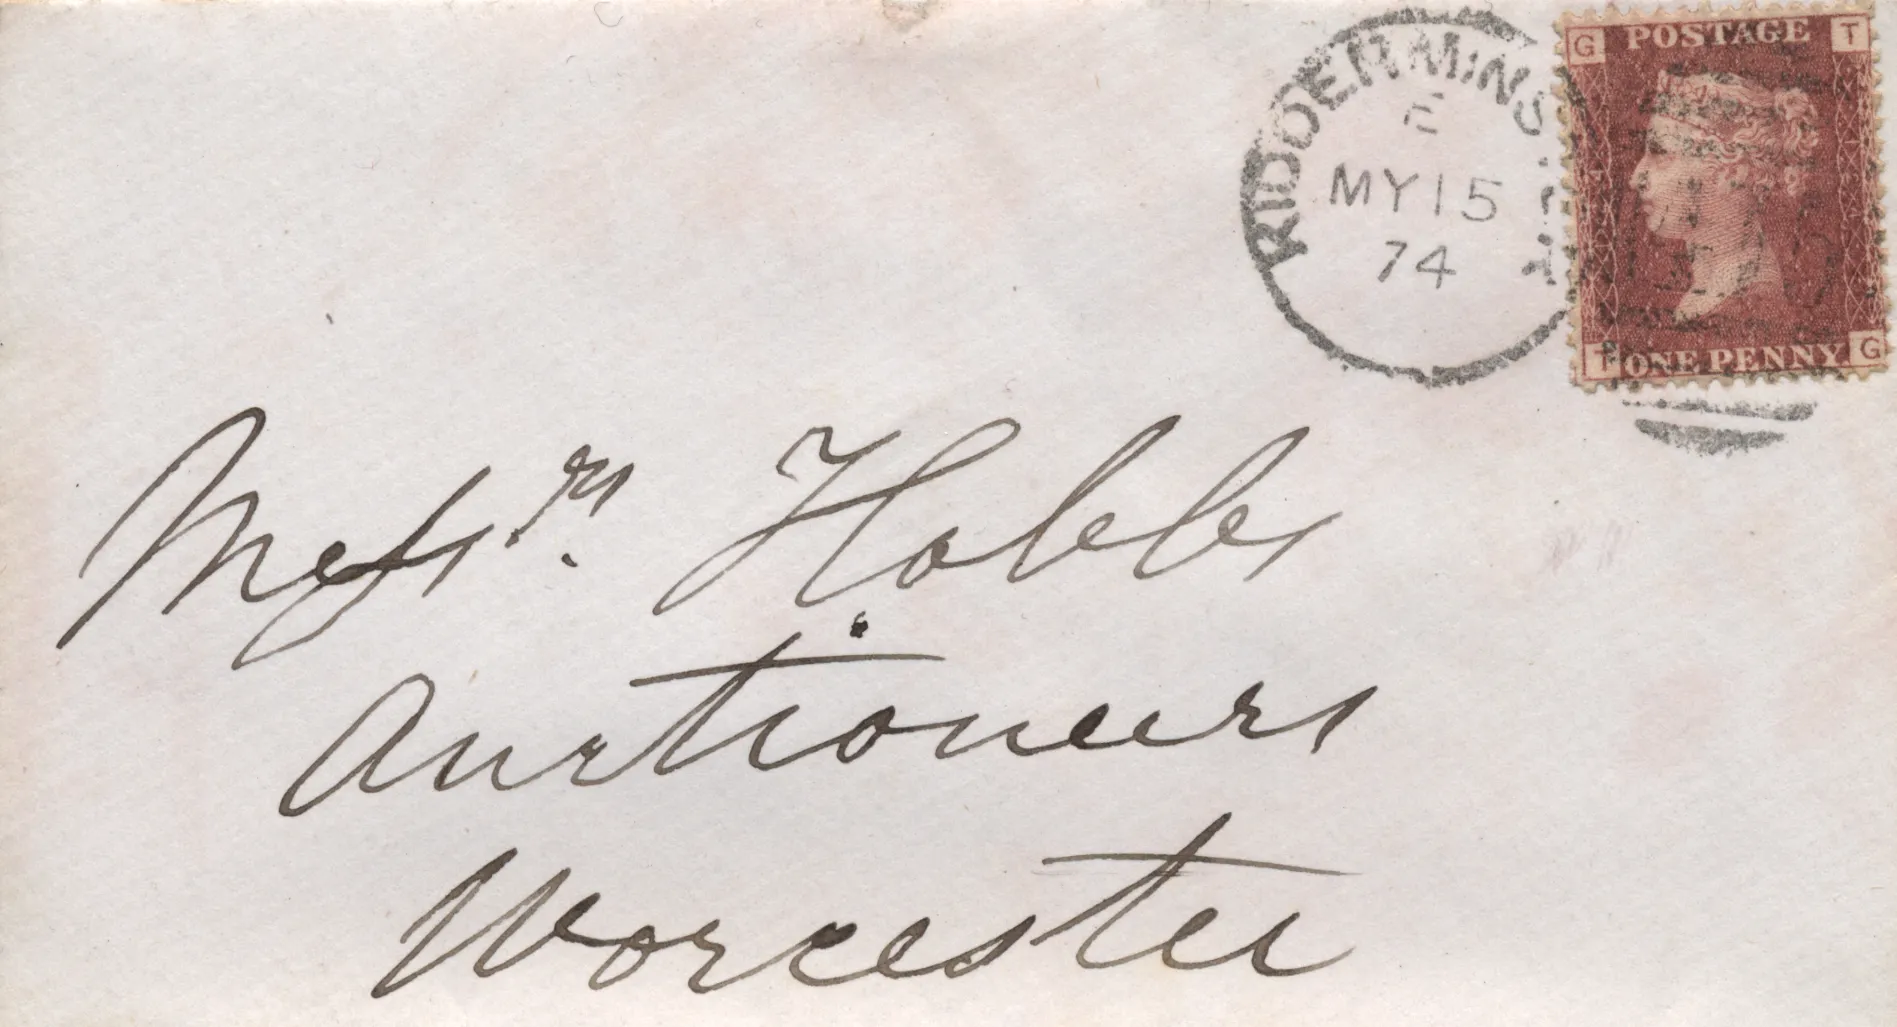 KIDDERMINSTER
E
MY 15
74
G POSTAGE T
T ONE PENNY G
Messrs. Hobbs
Auctioneers
Worcester